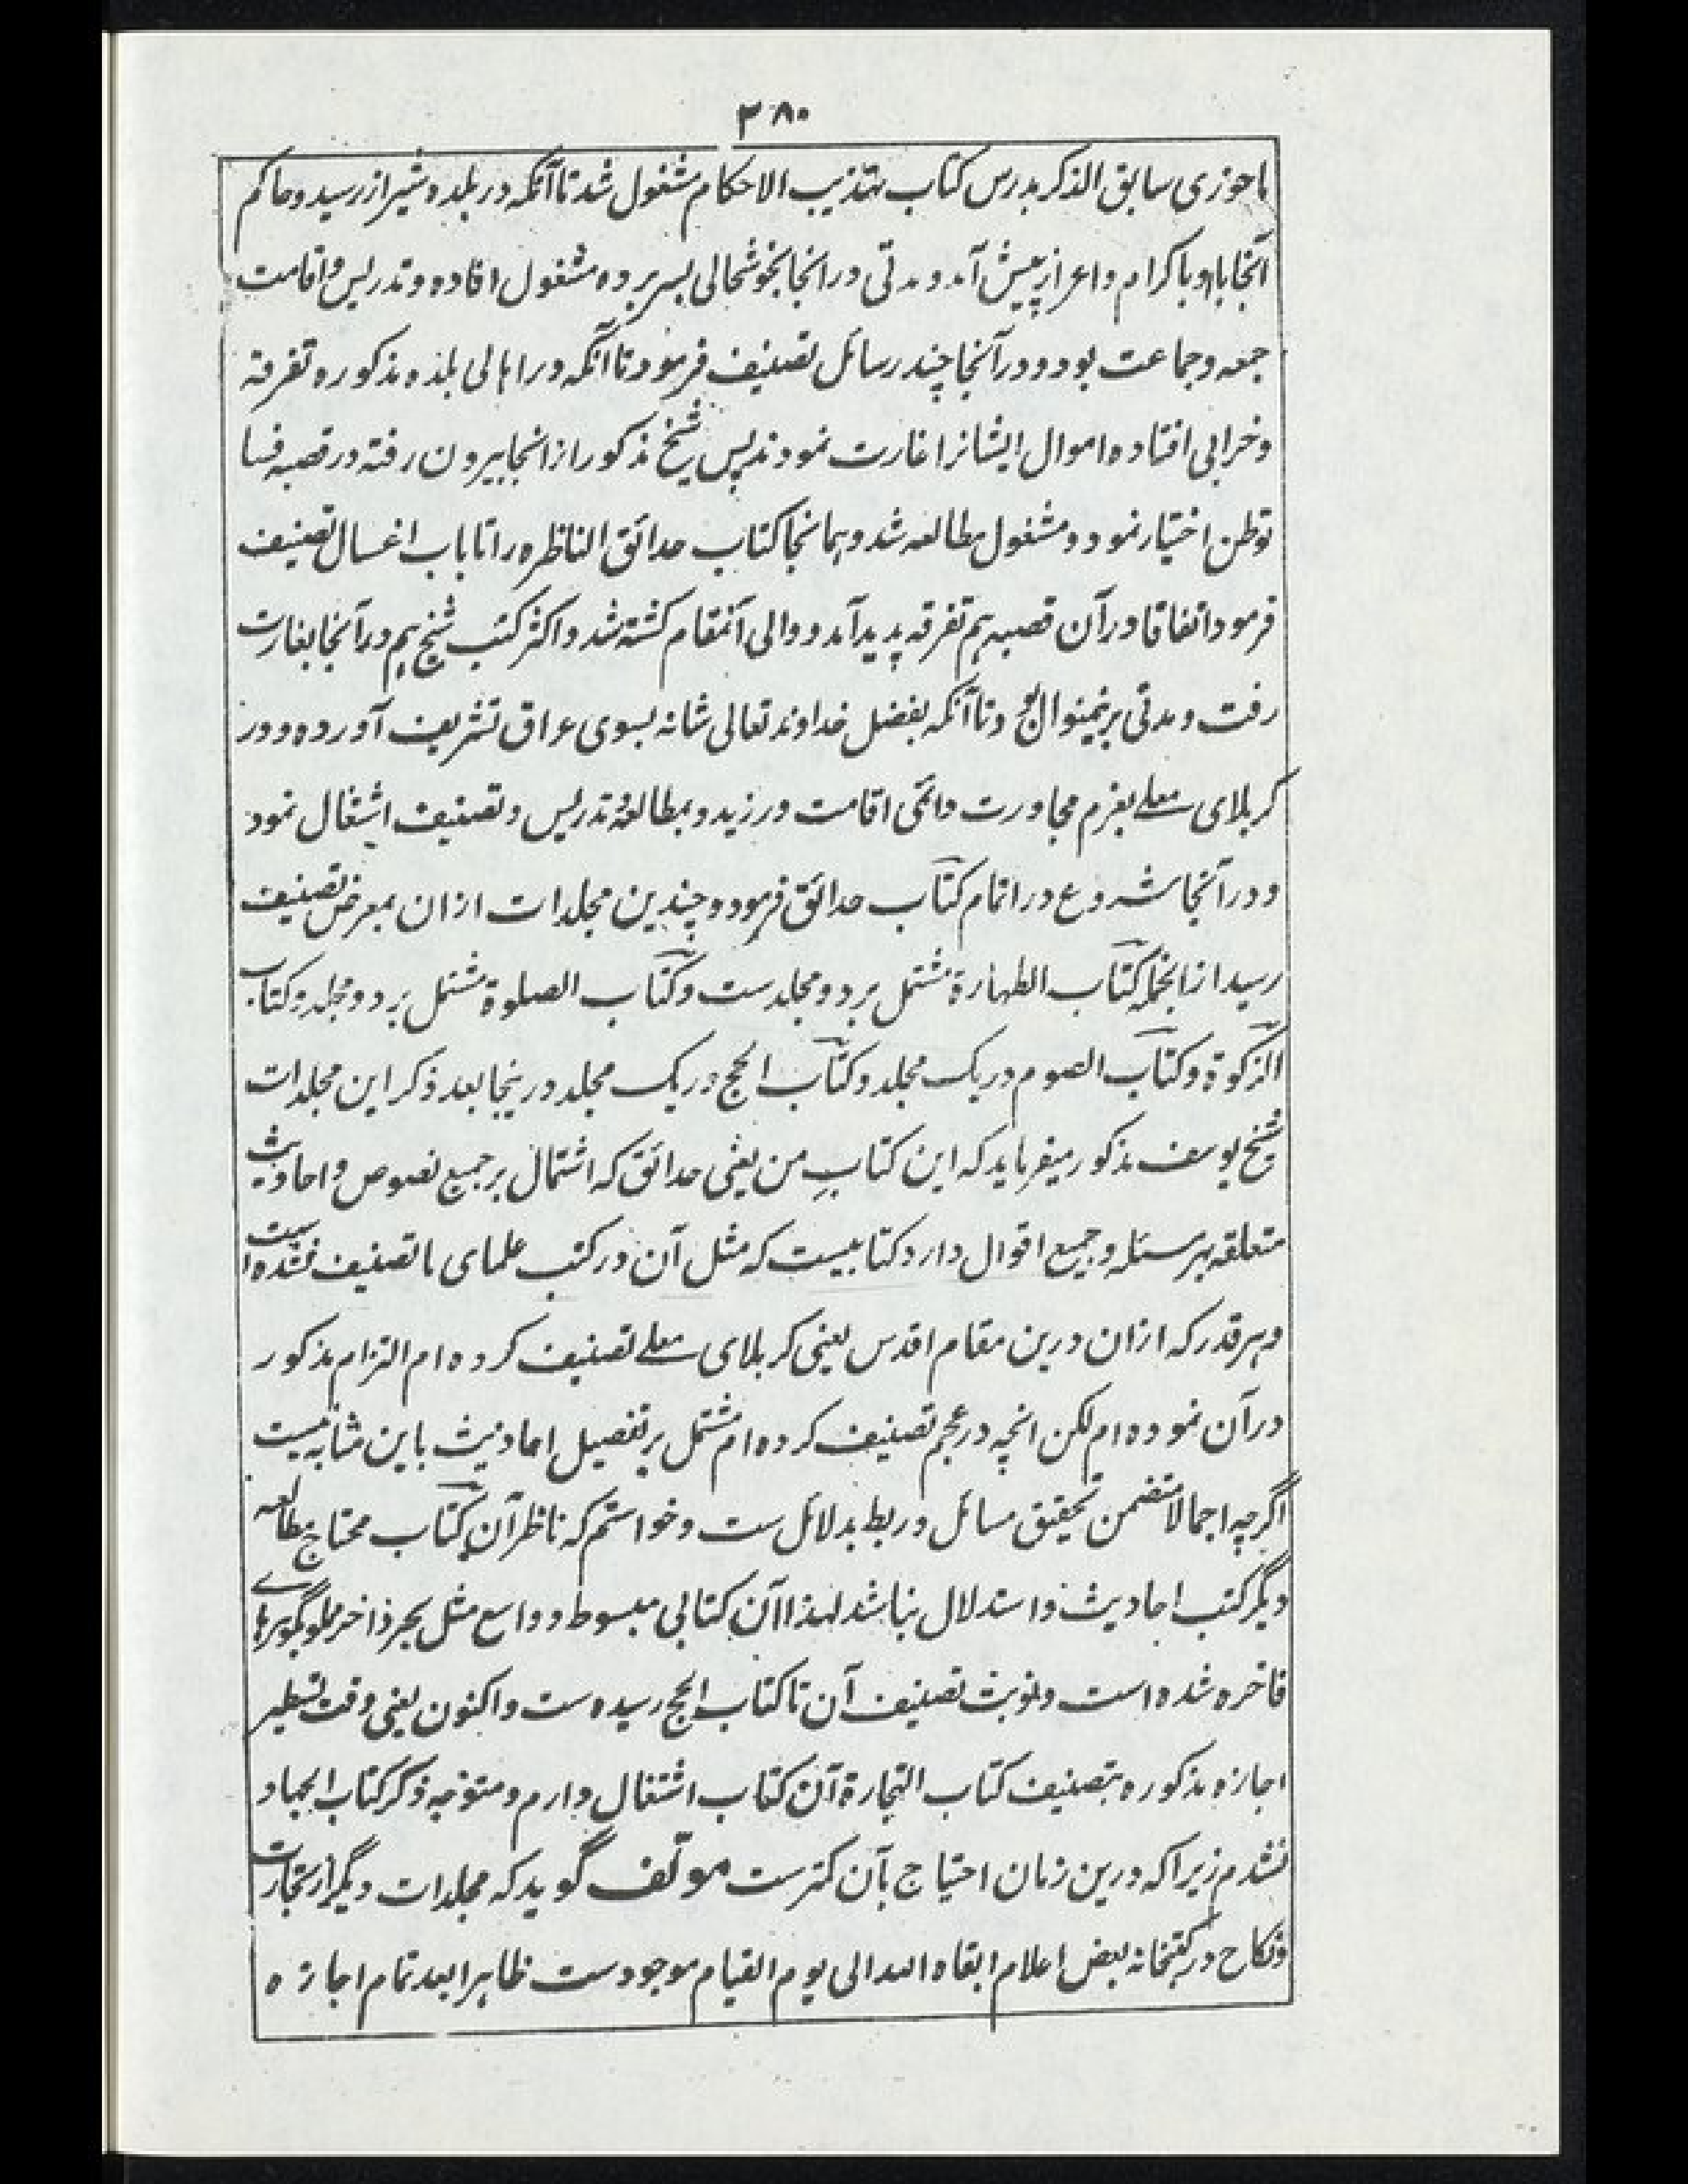 ۳۸۰
ماحوزی سابق الذکر بدرس کتاب تهذیب الاحکام مشغول شد تا آنکه در بلده شیراز رسید و حاکم
آنجا با او با کرام و اعزاز پیش آمد و مدتی در انجا بخوشحالی بسر برده مشغول افاده و تدریس و اقامت
جمعه و جماعت بود و در آنجا چند رسائل تصنیف فرمود تا آنکه در اهالی بلده مذکوره تفرقه
و خرابی افتاده اموال ایشانرا غارت نمودند پس شیخ مذکور از انجا بیرون رفته در قصبه فسا
توطن اختیار نمود و مشغول مطالعه شد و همانجا کتاب حدائق الناظره را تا باب اغسال تصنیف
فرمود اتفاقا در آن قصبه هم تفرقه پدید آمد و والی آنمقام کشته شد و اکثر کتب شیخ هم در آنجا بغارت
رفت و مدتی برینمنوال بود تا آنکه بفضل خداوند تعالی شانه بسوی عراق تشریف آورده و در
کربلای معلے بعزم مجاورت دائمی اقامت ورزید و بمطالعه و تدریس و تصنیف اشتغال نمود
و در آنجا شروع در اتمام کتاب حدائق فرمود و چندین مجلدات ازان بمعرض تصنیف
رسید ازانجمله کتاب الطهارة مشتمل بر دو مجلدست و کتاب الصلوة مشتمل بر دو مجلد و کتاب
الزکوة و کتاب الصوم در یک مجلد و کتاب الحج در یک مجلد درینجا بعد ذکر این مجلدات
شیخ یوسف مذکور میفرماید که این کتاب من یعنی حدائق که اشتمال بر جمیع نصوص و احادیث
متعلقه بهر مسئله و جمیع اقوال دارد کتابیست که مثل آن در کتب علمای ما تصنیف نشده است
و هر قدر که ازان درین مقام اقدس یعنی کربلای معلے تصنیف کرده ام التزام مذکور
در آن نموده ام لکن انچه در عجم تصنیف کرده ام مشتمل بر تفصیل احادیث باین مثابه نیست
اگرچه اجمالا متضمن تحقیق مسائل و ربط بدلائل ست و خواستم که ناظر آن کتاب محتاج مطالعه
دیگر کتب احادیث و استدلال نباشد لهذا آن کتابی مبسوط و واسع مثل بحر ذاخر مملو بگوهرهای
فاخره شده است و نوبت تصنیف آن تا کتاب الحج رسیده ست و اکنون یعنی وقت تسطیر
اجازه مذکوره بتصنیف کتاب التجارة آن کتاب اشتغال دارم و متوجه ذکر کتاب الجهاد
نشدم زیرا که درین زمان احتیاج بآن کمترست مؤلف گوید که مجلدات دیگر از تجارت
و نکاح در کتبخانه بعض اعلام ابقاه الله الی یوم القیام موجودست ظاهرا بعد تمام اجازه